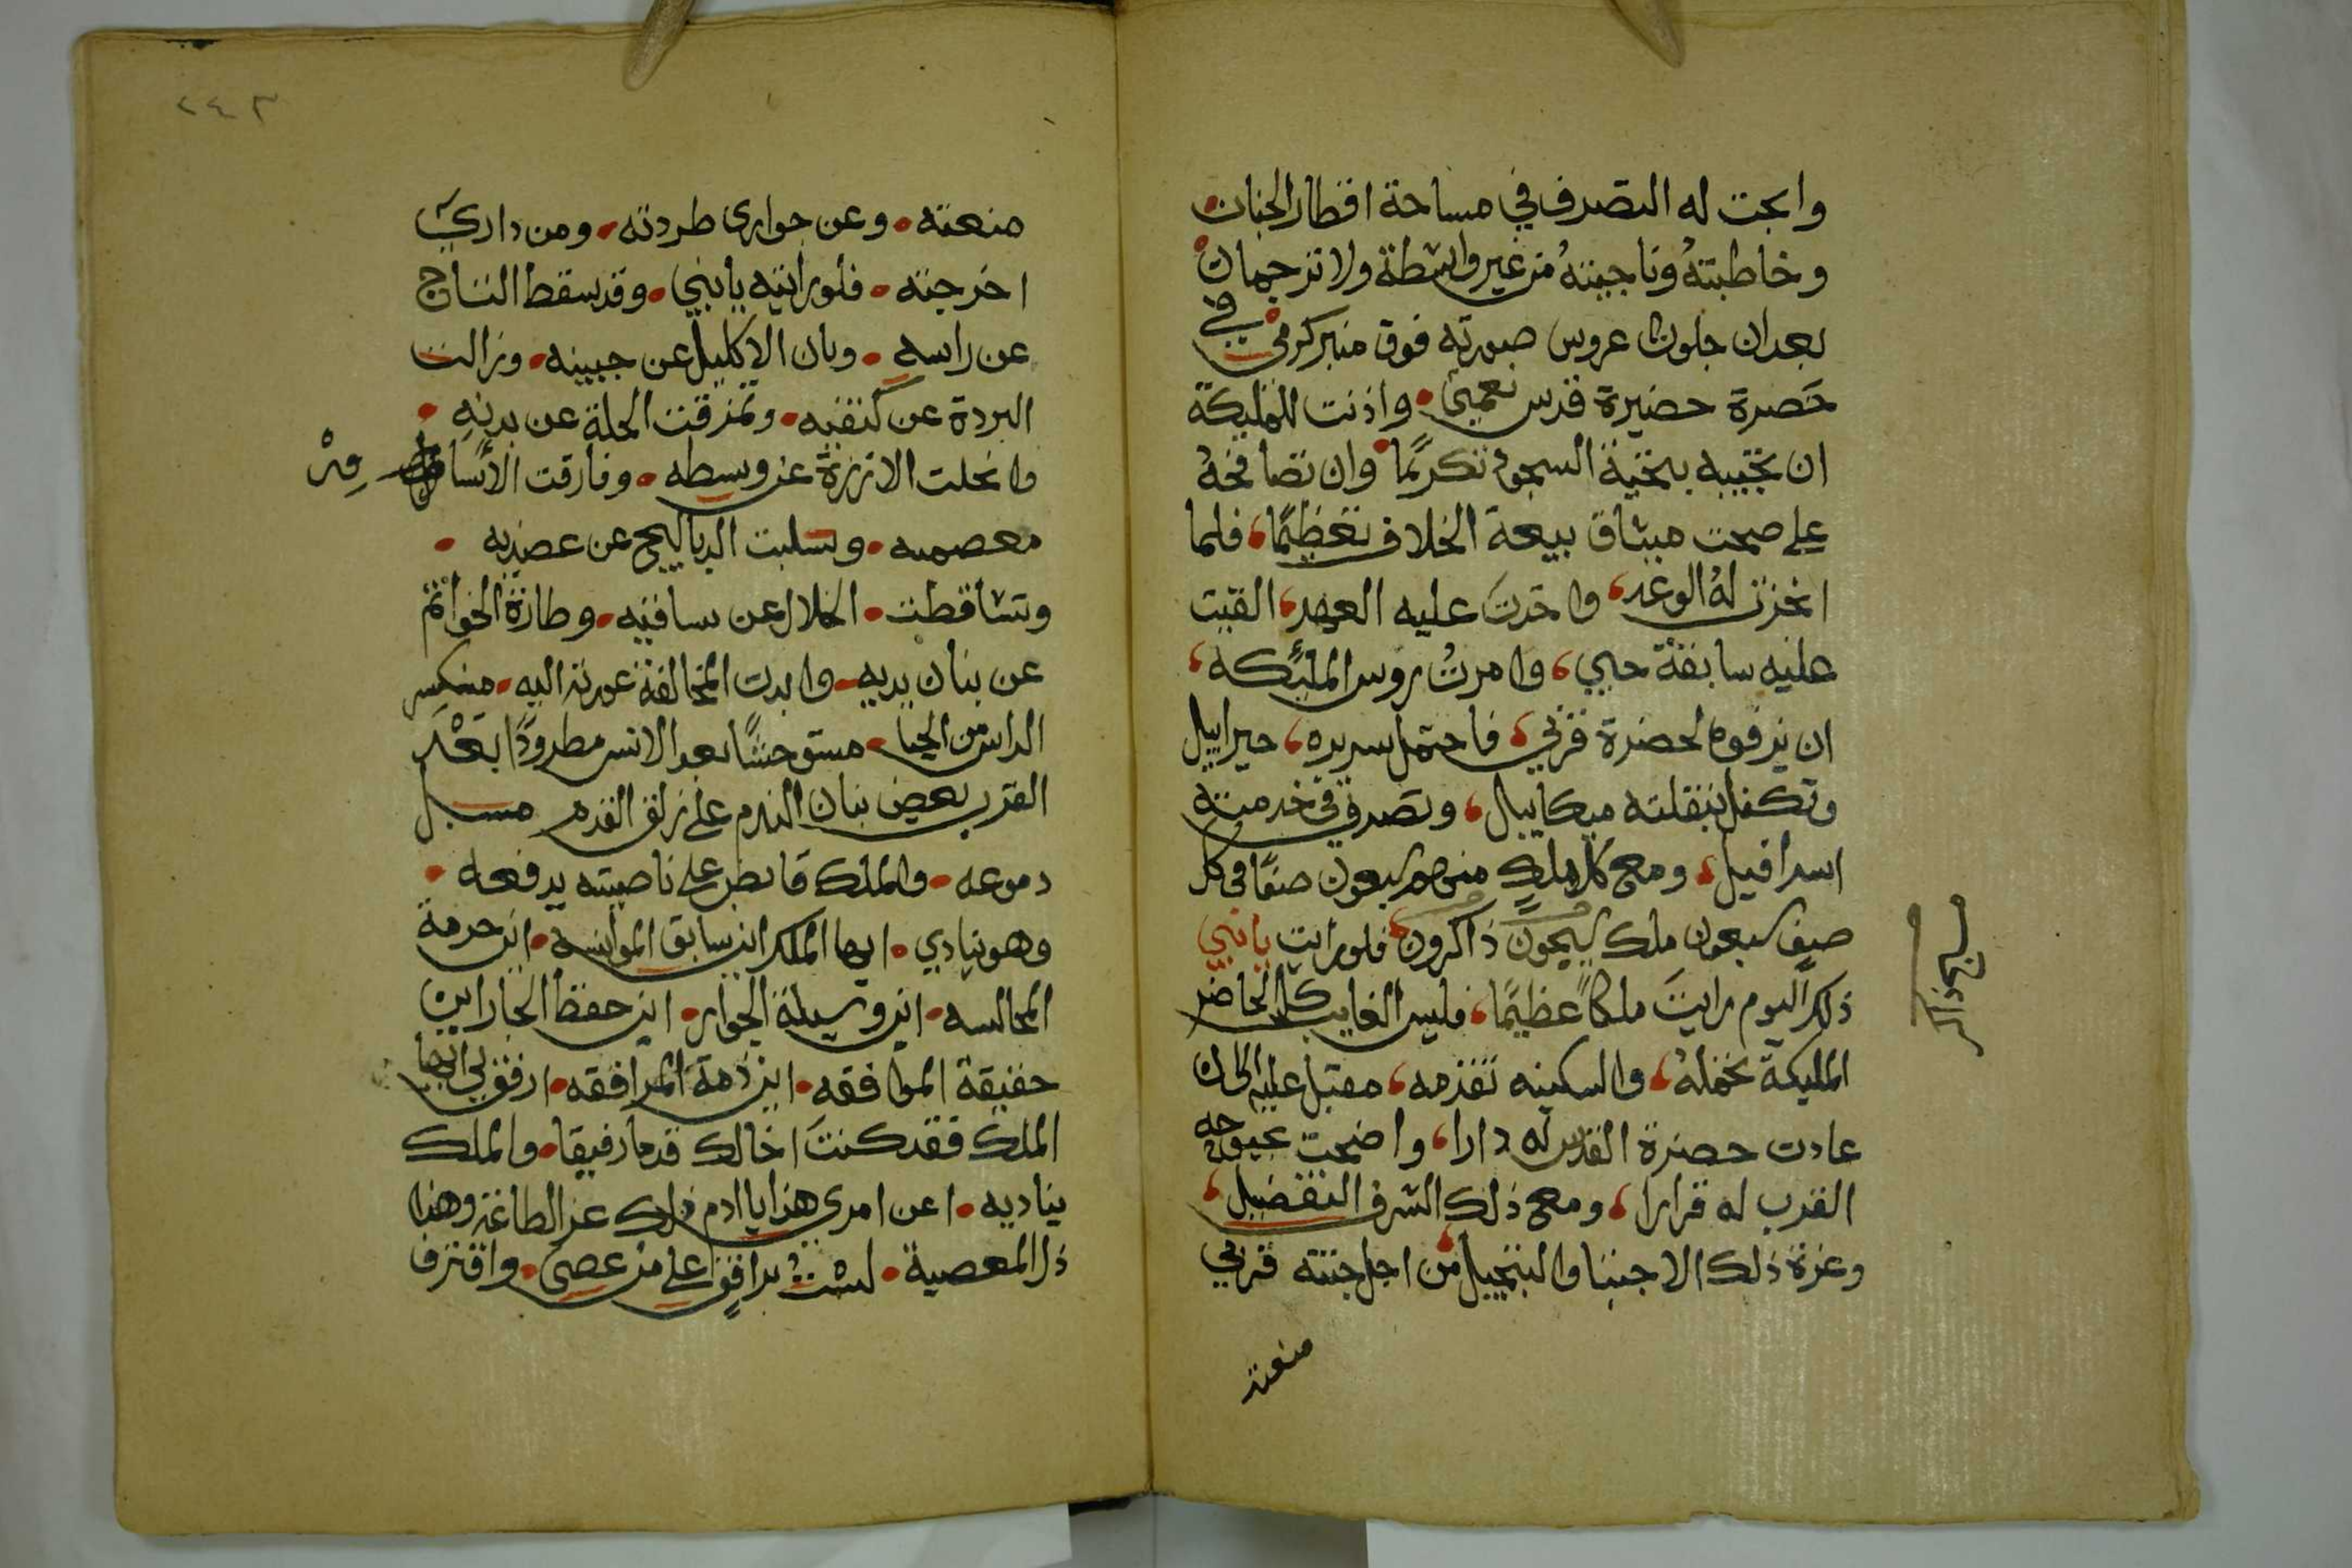 وابحت له التصرف في مساحة اقطار الجنان
وخاطبتهُ وناجيتهُ من غير واسطة ولا ترجمان
بعد ان جلوت عروس صورته فوق منبر كرمي في
حَصرة حضيرة قدس نعمتي واذنت للمليكة
ان تحييه بتحية السجود تكريمًا وان تصافحهُ
علي صحت ميثاق بيعة الخلاف تعظيمًا فلما
انجزت لهُ الوعد واخدتَ عليه العهد القيت
عليه سابقة حبي وامرتُ روس الملئكه
ان يزفوه لحضرة قربي فاحتمل سريره جبراييل
وتكفل بنقلته ميكاييل وتصرف في خدمته
اسرافيل ومع كل ملكٍ منهم سبعون صفًا في كل
صفٍ سبعون ملك يسبحون ذاكرون فلو رايت يابني
ذلك اليوم رايتَ ملكاً عظيمًا فليس الغايب كالحاضر
المليكة تحملهُ والسكينه تقدمه مقبل عليه الى ان
عادت حضرة القدس له دارا واضحت
القرب له قرارا ومع ذلك الشرف التفضيل
وعزة ذلك الاجتبا والتبجيل من اجل جنته قربي
منعته
منعته وعن جواري طردته ومن داري
اخرجته فلو رايته يابني وقد سقط التاج
عن راسه وبان الاكليل عن جبينه وزالت
البردة عن كتفيه وتمزقت الحلة عن بدنه
وانحلت الازرة عن وسطه وفارقت الاساور
معصميه وسلبت الدياليج عن عضديه
وتساقطت الخلال عن ساقيه وطارة الخواتم
عن بنان يديه وابدت المخالفة عورته اليه منكس
الراس من الحيا مستوحشًا بعد الانس مطرودًا بَعْدَ
القرب يعض بنان الندم على زلق القدم مسبل
دموعه والملك قابض علي ناصيته يدفعه
وهو ينادي ايها الملك اين سابق الموانسه اين حرمة
المجالسه اين وسيلة الجوار اين حفظ الجار اين
حقيقة الموافقه اين ذمة المرافقه ارفق بي ايها
الملك فقد كنتَ اخالك قدما رفيقا والملك
يناديه اعن امري هذا يا ادم ذلك عز الطاعة وهذا
ذل المعصية لستُ برافقٍ على من عصى واقترف